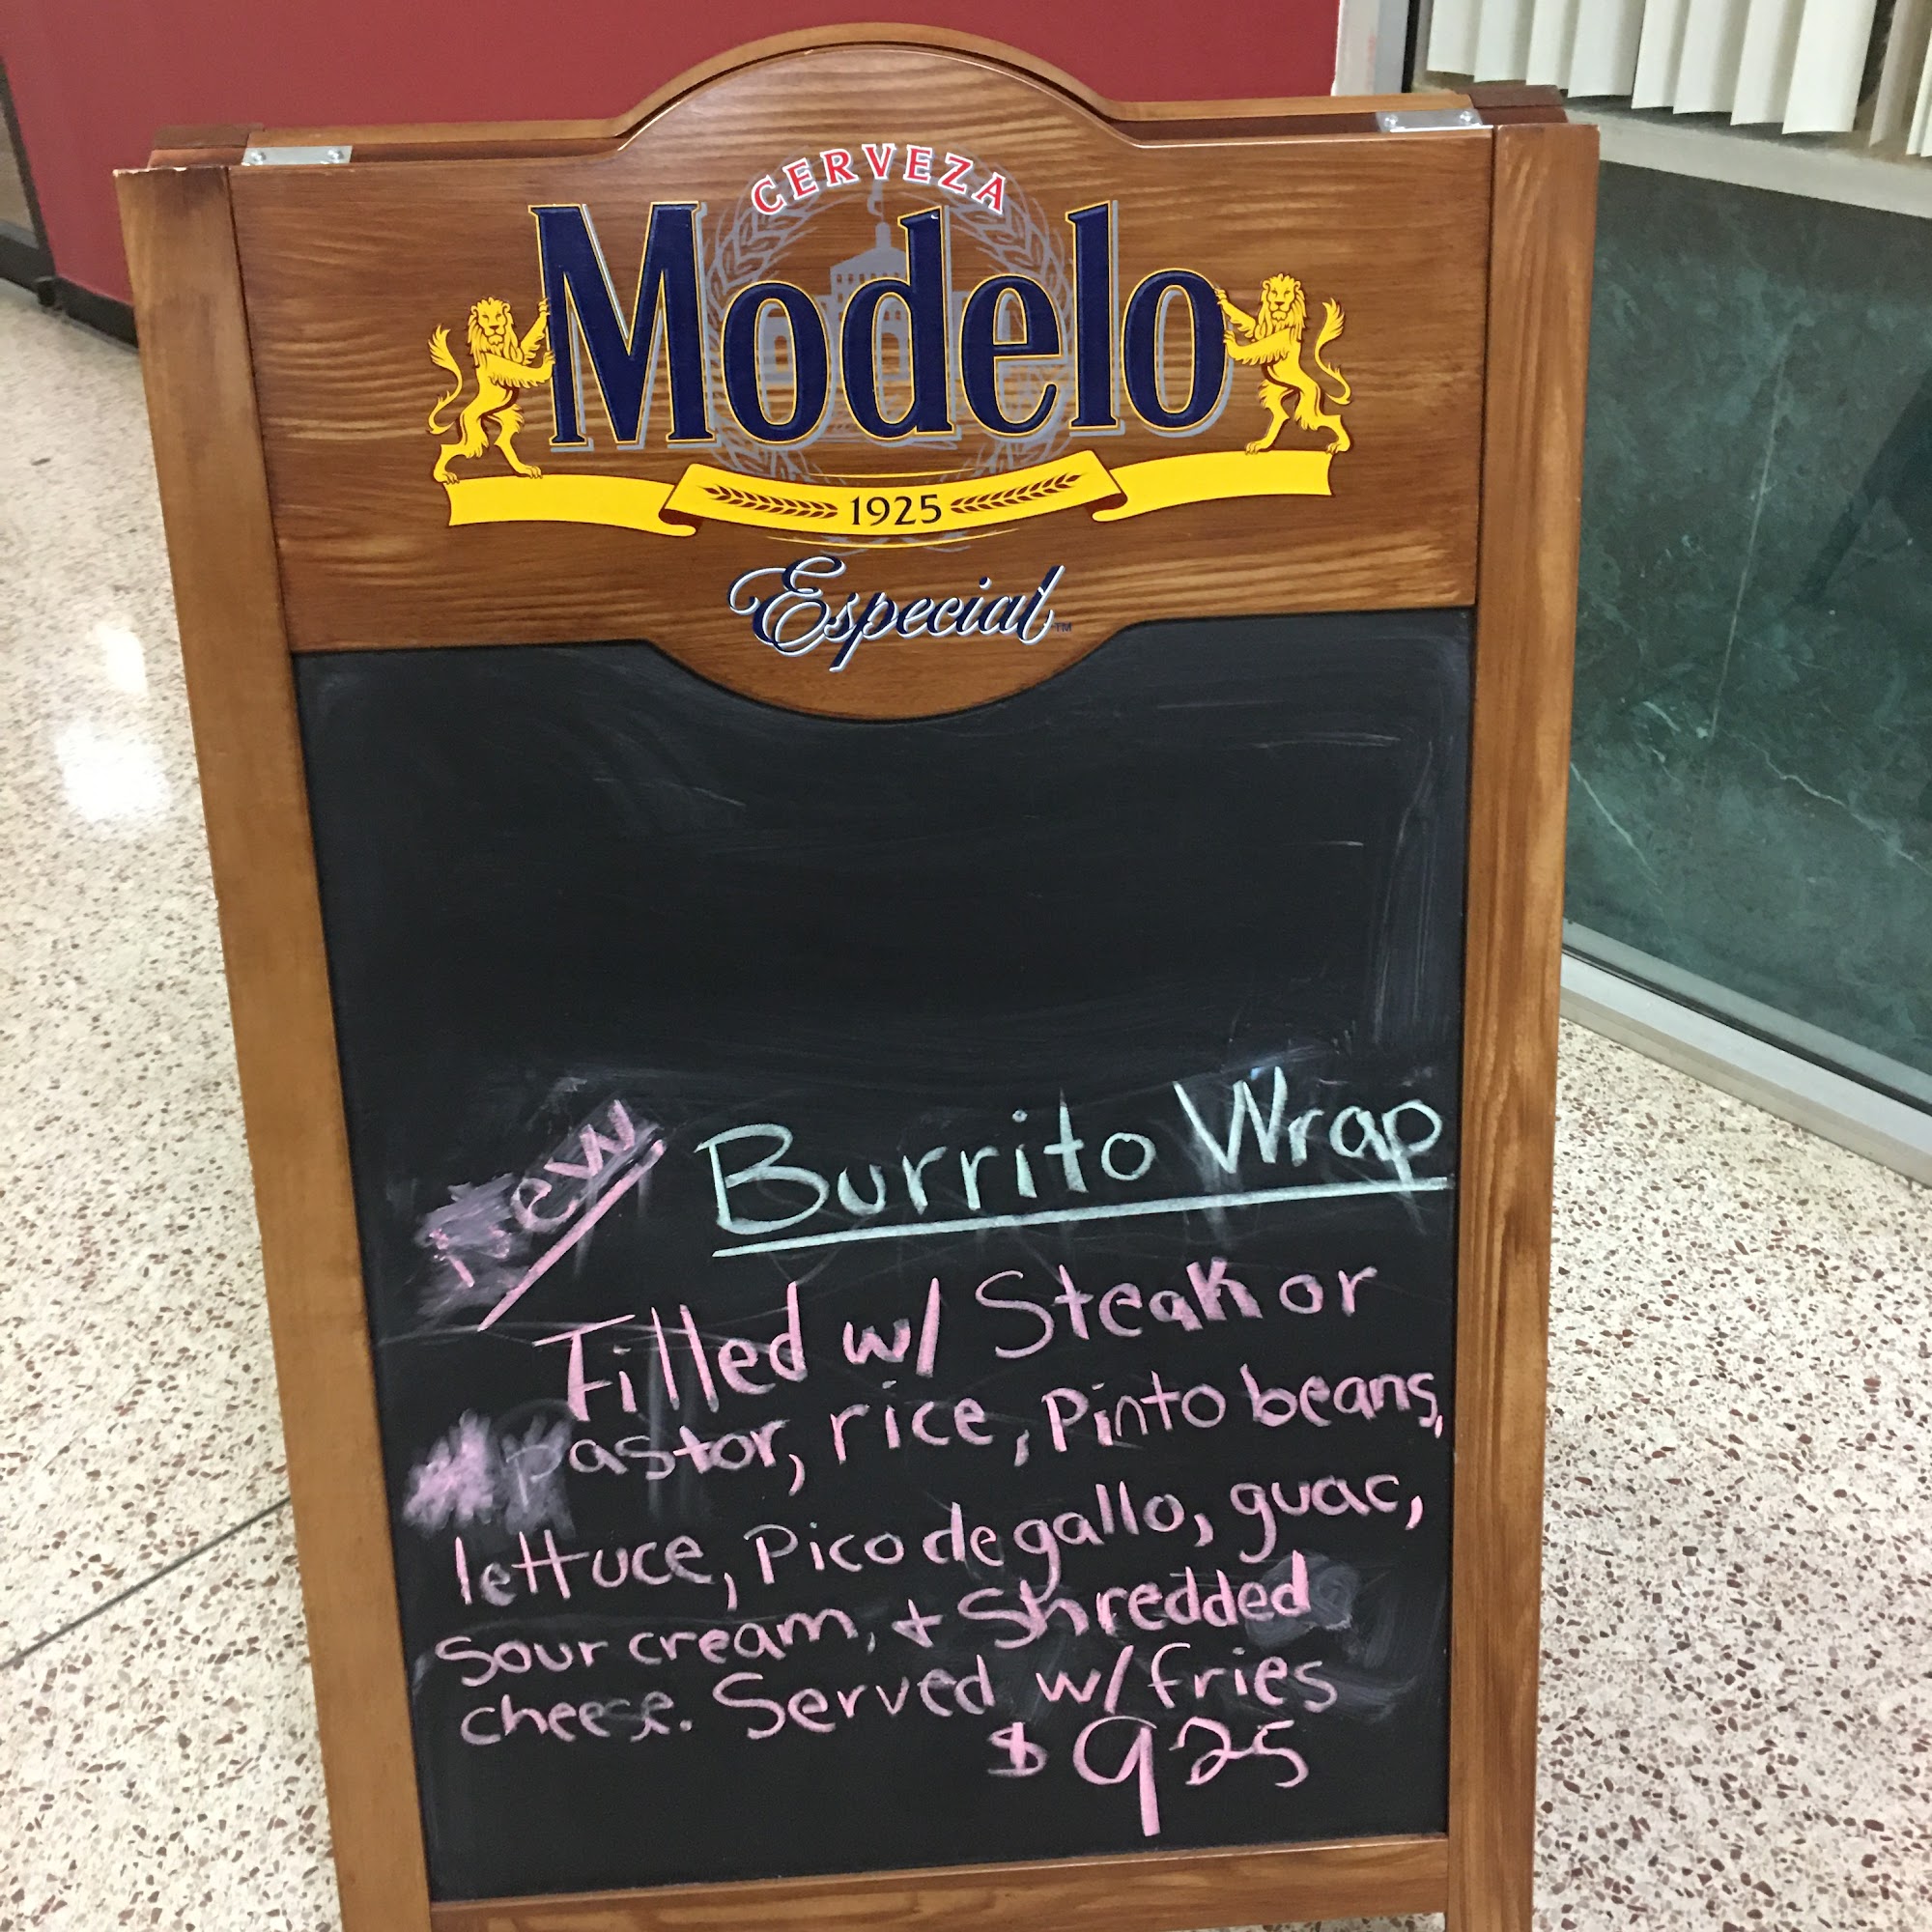 CERVEZA
Modelo
1925
Especial™
New
Burrito Wrap
Filled w/ Steak or
pastor, rice, Pinto beans,
lettuce, Pico de gallo, guac,
Sour cream, + Shredded
cheese. Served w/ fries
$ 925